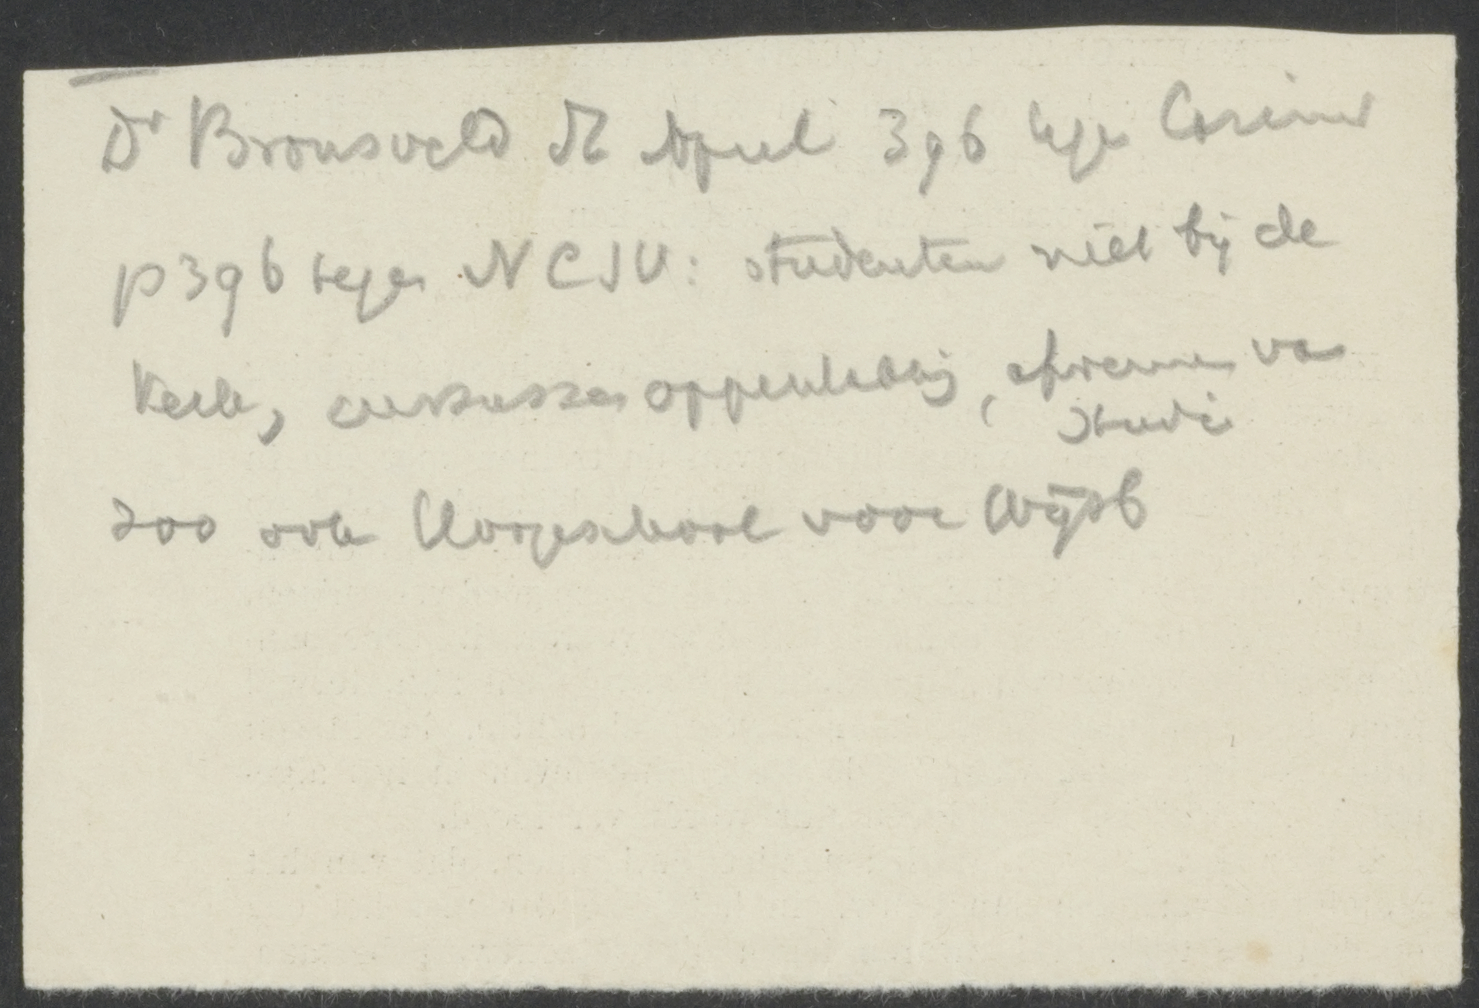 Dr Bronsveld St April 396 tegen Casimir
p 396 tegen NCSV: studenten niet bij de
Kerk, cursussen oppervlakkig, aftrekken van
studie
zoo ook Universschool voor Wijsb